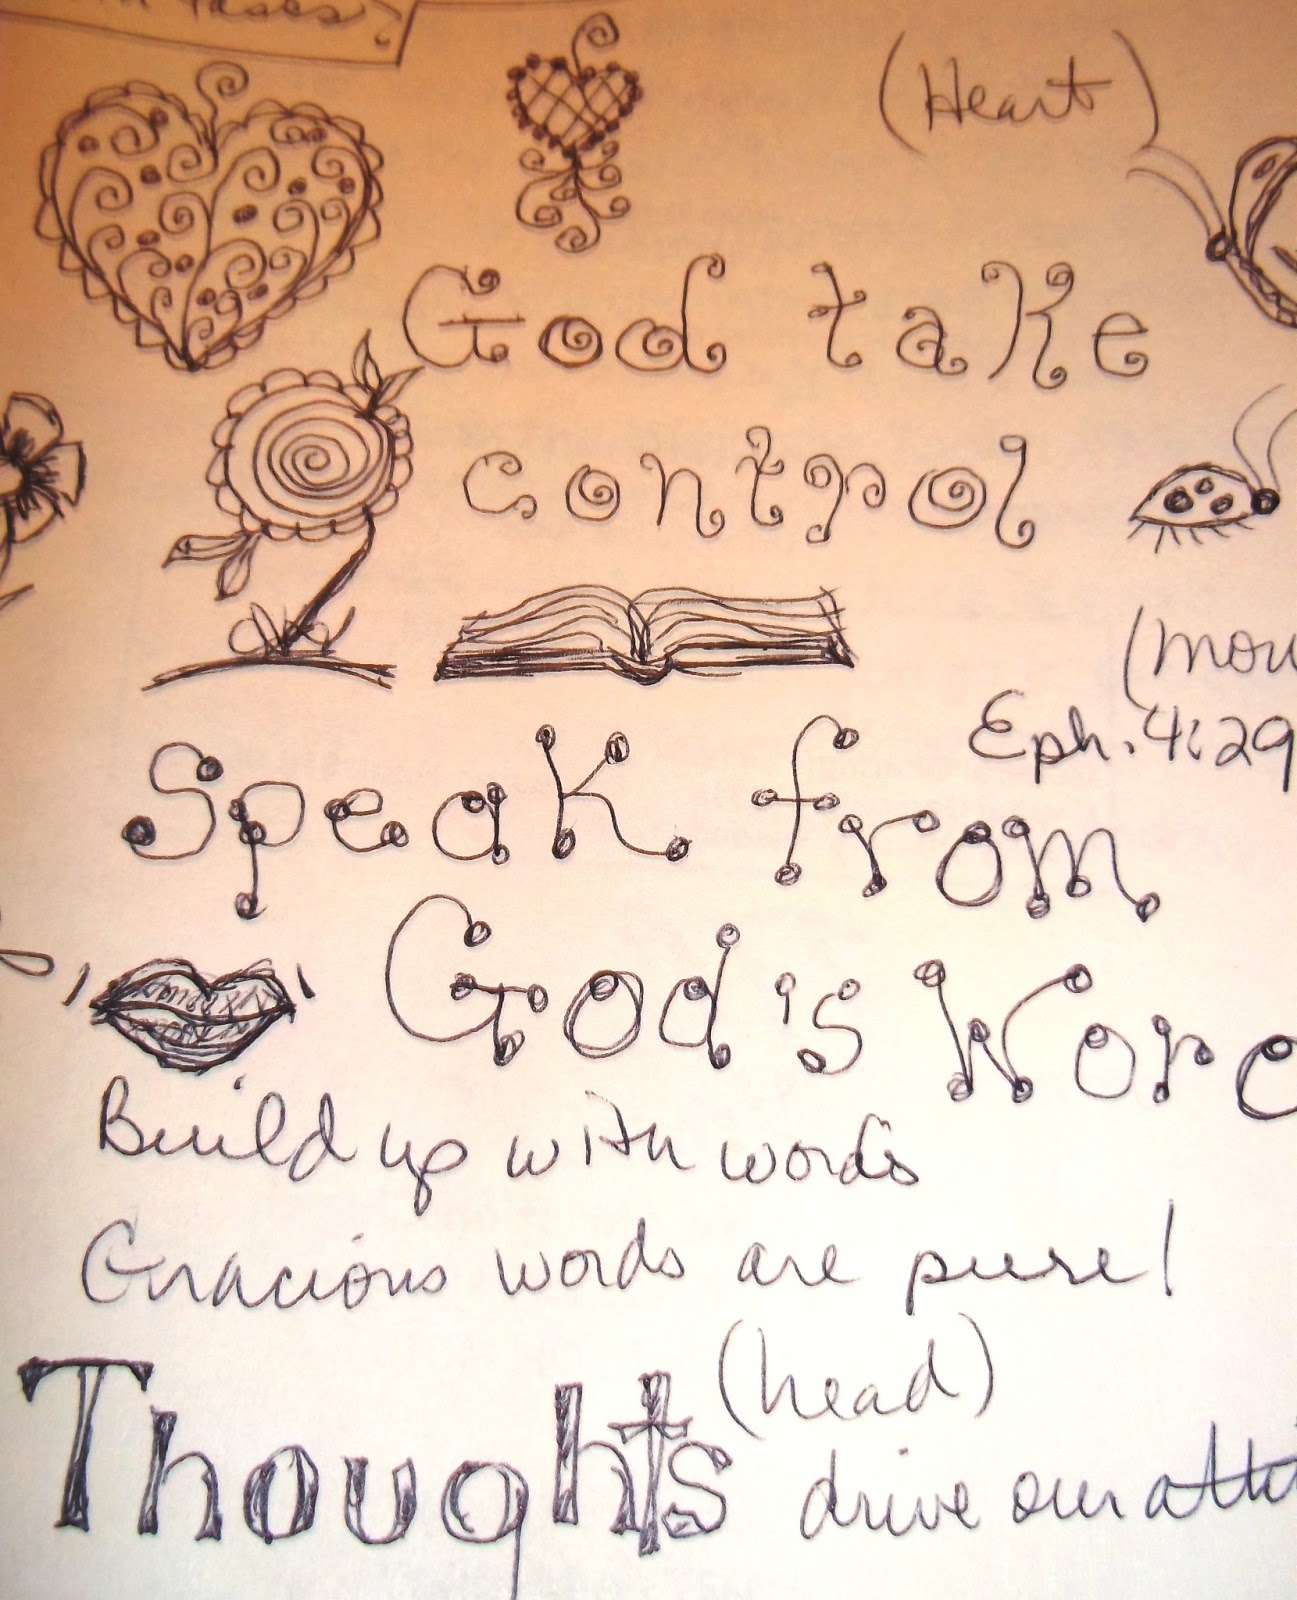 (Heart)
God take
control
(mou
Eph. 4:29
Speak from
God's Word
Build up with words
Gracious words are pure!
(head)
Thoughts drive our atti